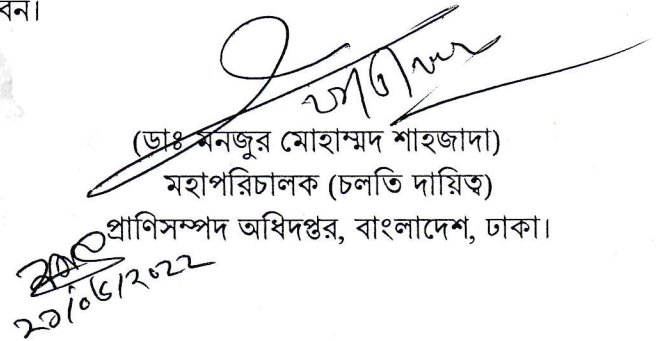 বন।
(ডাঃ মনজুর মোহাম্মদ শাহজাদা)
মহাপরিচালক (চলতি দায়িত্ব)
প্রাণিসম্পদ অধিদপ্তর, বাংলাদেশ, ঢাকা।